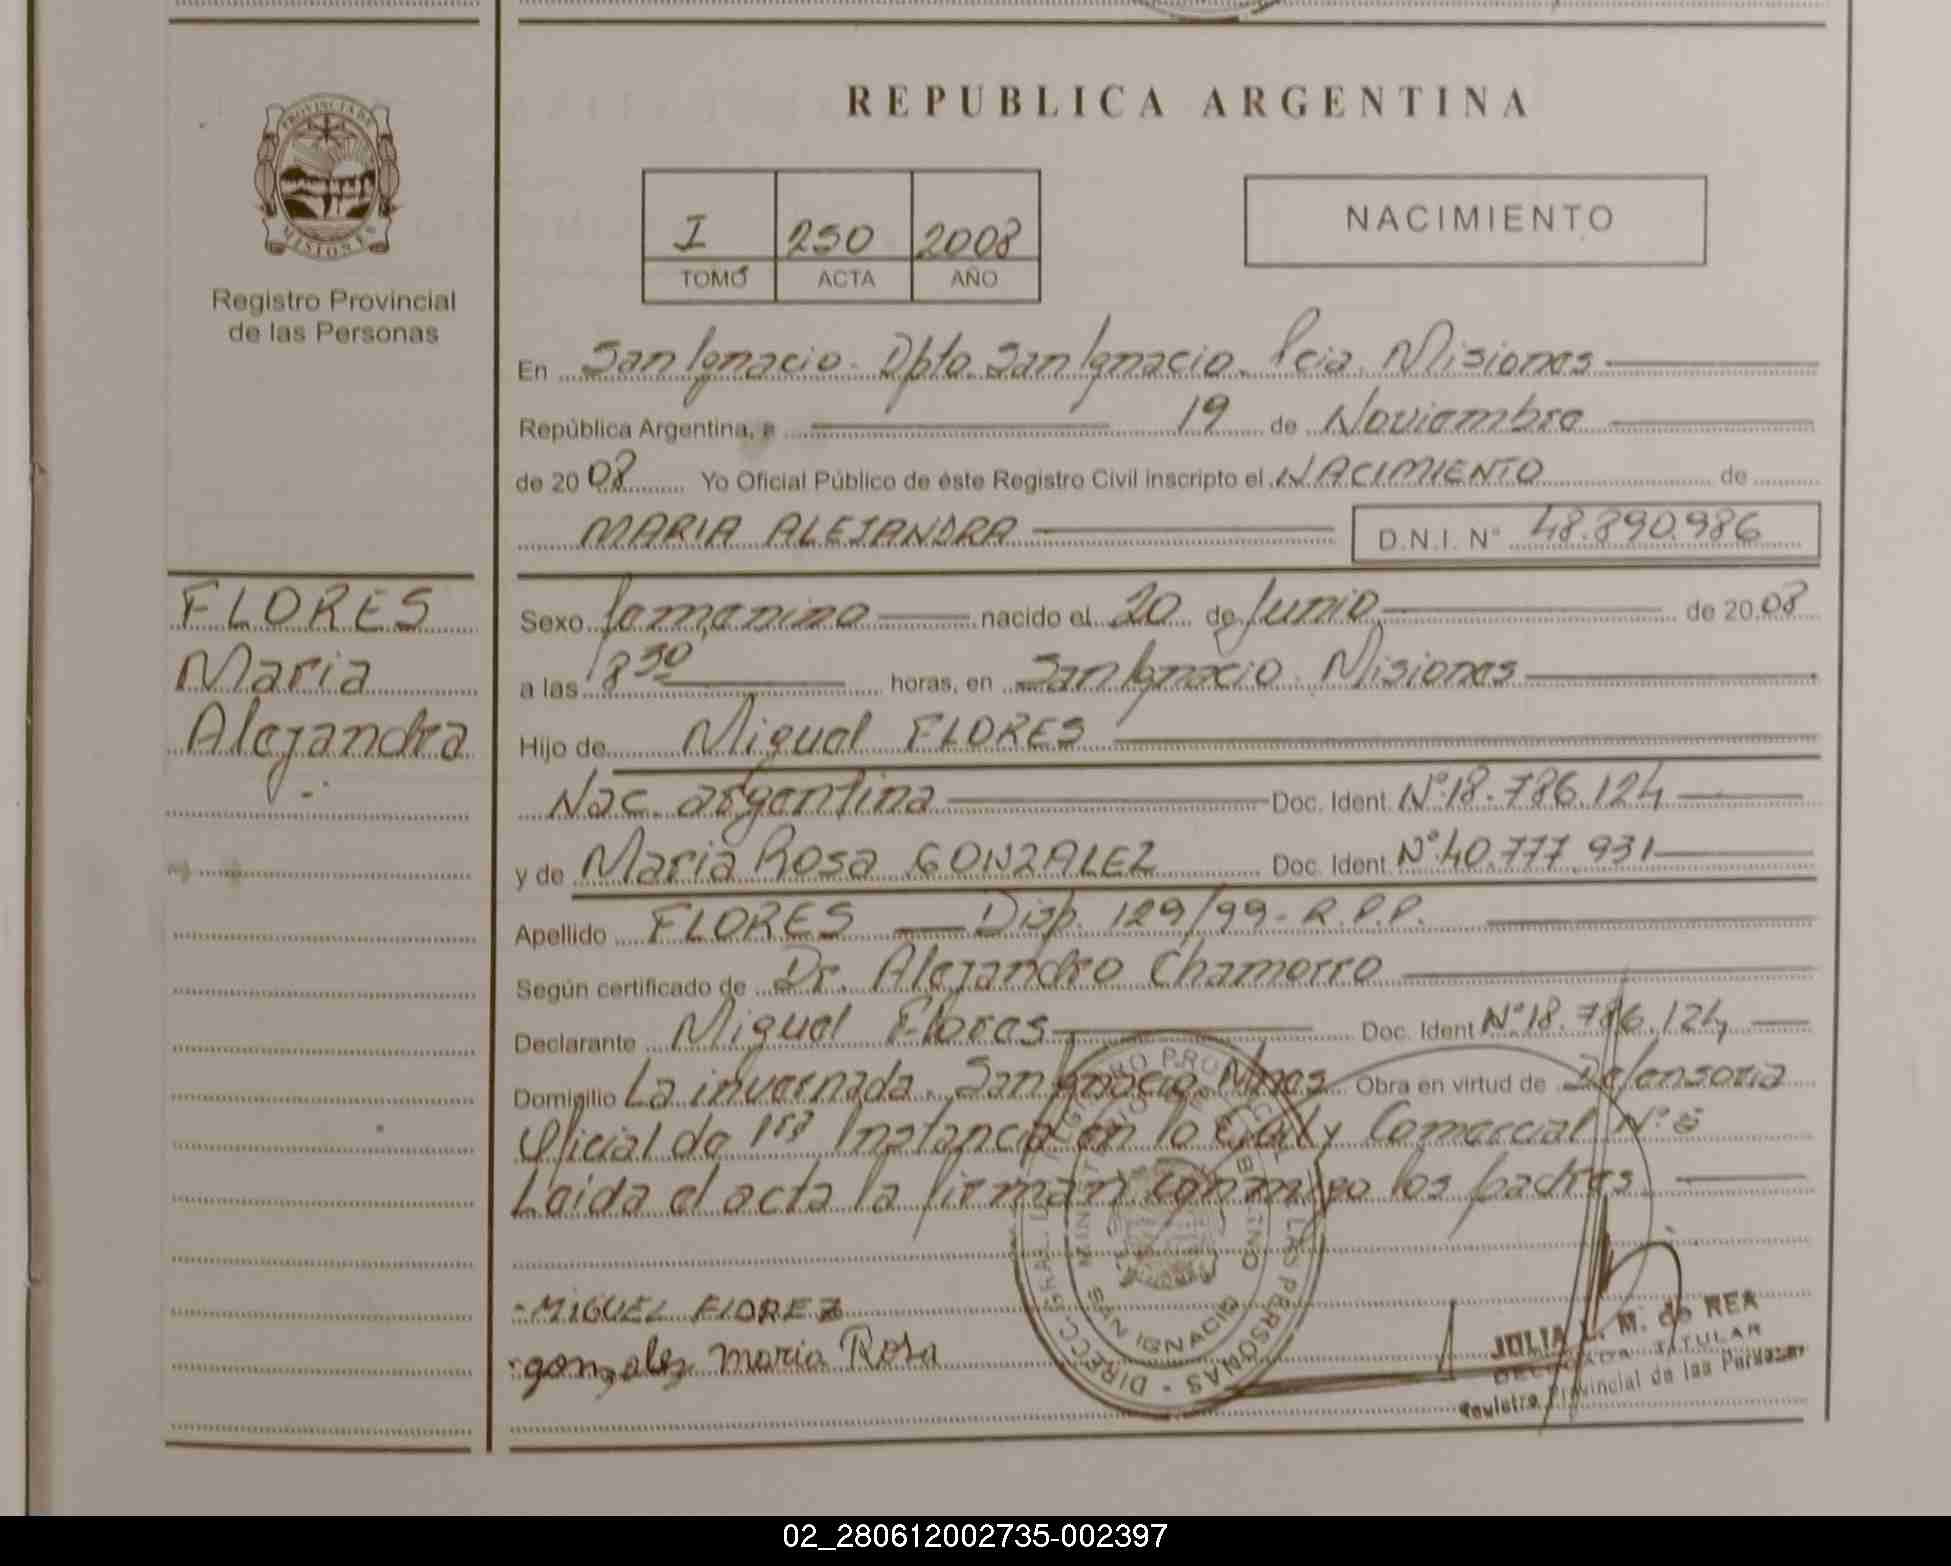 REPUBLICA ARGENTINA
PROVINCIA DE
MISIONES
Registro Provincial
de las Personas
I 250 2008
TOMO ACTA AÑO
NACIMIENTO
En San Ignacio. Dpto. San Ignacio. Pcia. Misiones
República Argentina, a 19 de Noviembre
de 2008 Yo Oficial Público de éste Registro Civil inscripto el NACIMIENTO de
MARIA ALEJANDRA D.N.I. Nº 48.890.986
FLORES
Maria
Alejandra
Sexo femenino nacido el 20 de Junio de 2008
a las 18 30 horas, en San Ignacio. Misiones
Hijo de Miguel FLORES
Nac. argentina Doc. Ident. Nº 18.786.124
y de Maria Rosa GONZALEZ Doc. Ident. Nº 40.777.931
Apellido FLORES Disp. 129/99- R.P.P.
Según certificado de Dr. Alejandro Chamorro
Declarante Miguel Flores Doc. Ident Nº 18.786.124
Domicilio La invernada. San Ignacio Mnes Obra en virtud de Defensoria
Oficial de 1ra Instancia en lo Civil y Comercial Nº
Leida el acta la firman conmigo los padres
-MIGUEL FLOREZ
-gonzalez maria Rosa
SAN IGNACIO
DIRECC. GRAL. LAS PERSONAS
JULIA L. M. de REA
DELEGADA TITULAR
Registro Provincial de las Personas
02_280612002735-002397